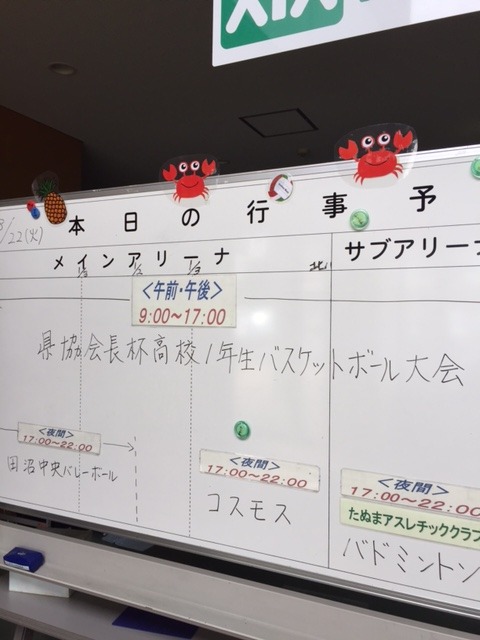 本日の行事予
8/22(火)
メインアリーナ
サブアリーナ
1/3 1/2 1/3 北
<午前・午後>
9:00~17:00
県協会長杯高校1年生バスケットボール大会
<夜間>
17:00~22:00
田沼中央バレーボール
<夜間>
17:00~22:00
コスモス
<夜間>
17:00~22:00
たぬまアスレチッククラブ
バドミントン